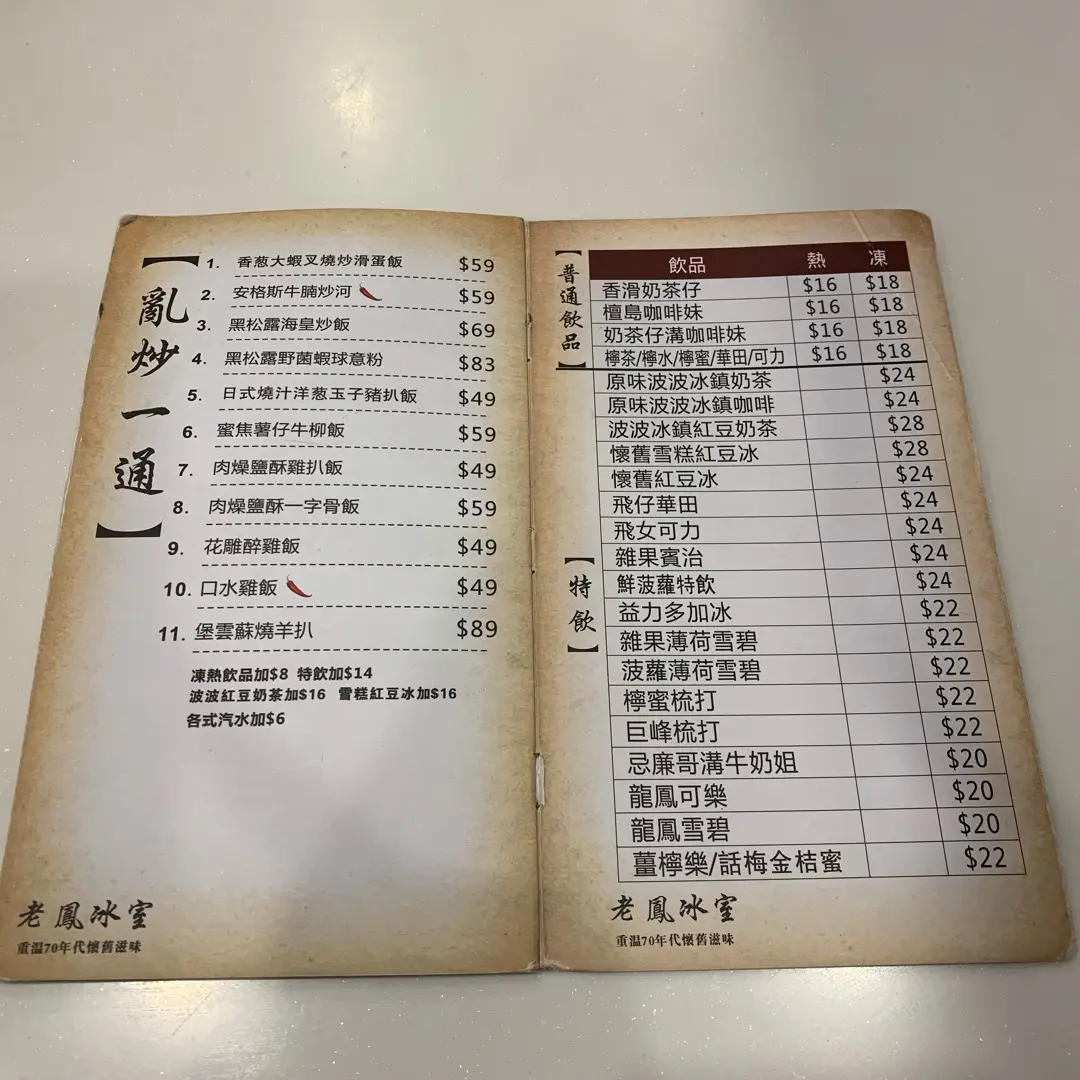 【亂炒一通】
1. 香葱大蝦叉燒炒滑蛋飯 $59
2. 安格斯牛腩炒河 $59
3. 黑松露海皇炒飯 $69
4. 黑松露野菌蝦球意粉 $83
5. 日式燒汁洋葱玉子豬扒飯 $49
6. 蜜焦薯仔牛柳飯 $59
7. 肉燥鹽酥雞扒飯 $49
8. 肉燥鹽酥一字骨飯 $59
9. 花雕醉雞飯 $49
10. 口水雞飯 $49
11. 堡雲蘇燒羊扒 $89
凍熱飲品加$8 特飲加$14
波波紅豆奶茶加$16 雪糕紅豆冰加$16
各式汽水加$6
老鳳冰室
重温70年代懷舊滋味
【普通飲品】
飲品 熱 凍
香滑奶茶仔 $16 $18
檀島咖啡妹 $16 $18
奶茶仔溝咖啡妹 $16 $18
檸茶/檸水/檸蜜/華田/可力 $16 $18
【特飲】
原味波波冰鎮奶茶 $24
原味波波冰鎮咖啡 $24
波波冰鎮紅豆奶茶 $28
懷舊雪糕紅豆冰 $28
懷舊紅豆冰 $24
飛仔華田 $24
飛女可力 $24
雜果賓治 $24
鮮菠蘿特飲 $24
益力多加冰 $22
雜果薄荷雪碧 $22
菠蘿薄荷雪碧 $22
檸蜜梳打 $22
巨峰梳打 $22
忌廉哥溝牛奶姐 $20
龍鳳可樂 $20
龍鳳雪碧 $20
薑檸樂/話梅金桔蜜 $22
老鳳冰室
重温70年代懷舊滋味